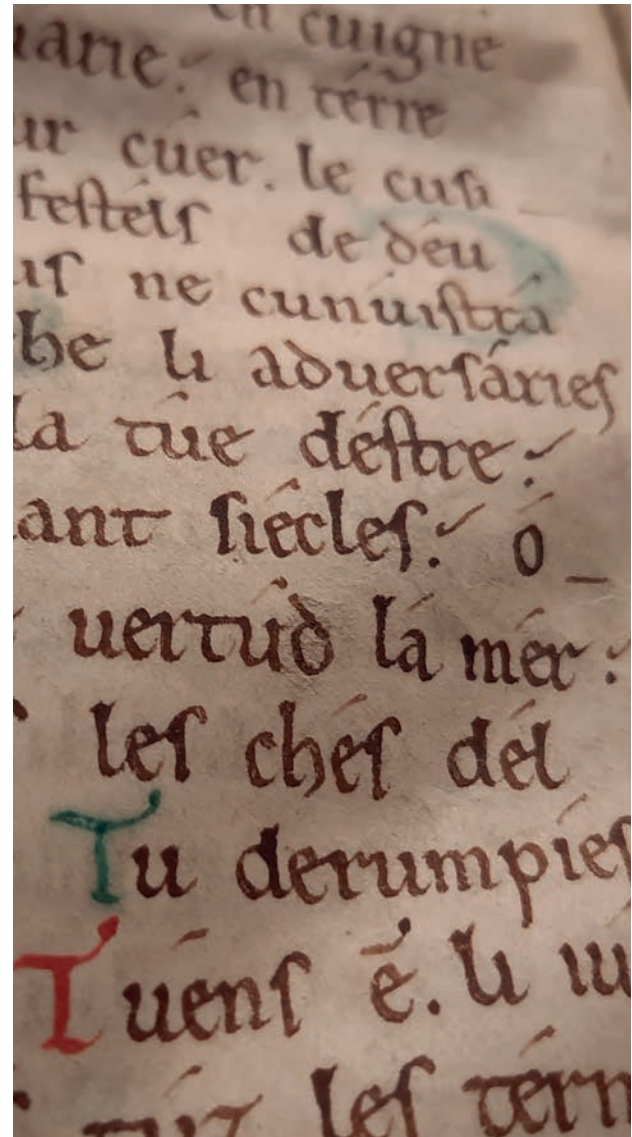 en cuigne
uarie: en térre
ur cúer. le cusi
festéls de déu
us ne cunuistrá
he li aduersáries
la túe déstre:
ant siécles: ó
uertúd lá mér:
les chés dél
Tu derumpies
Tuéns é. li iu
túz les térm